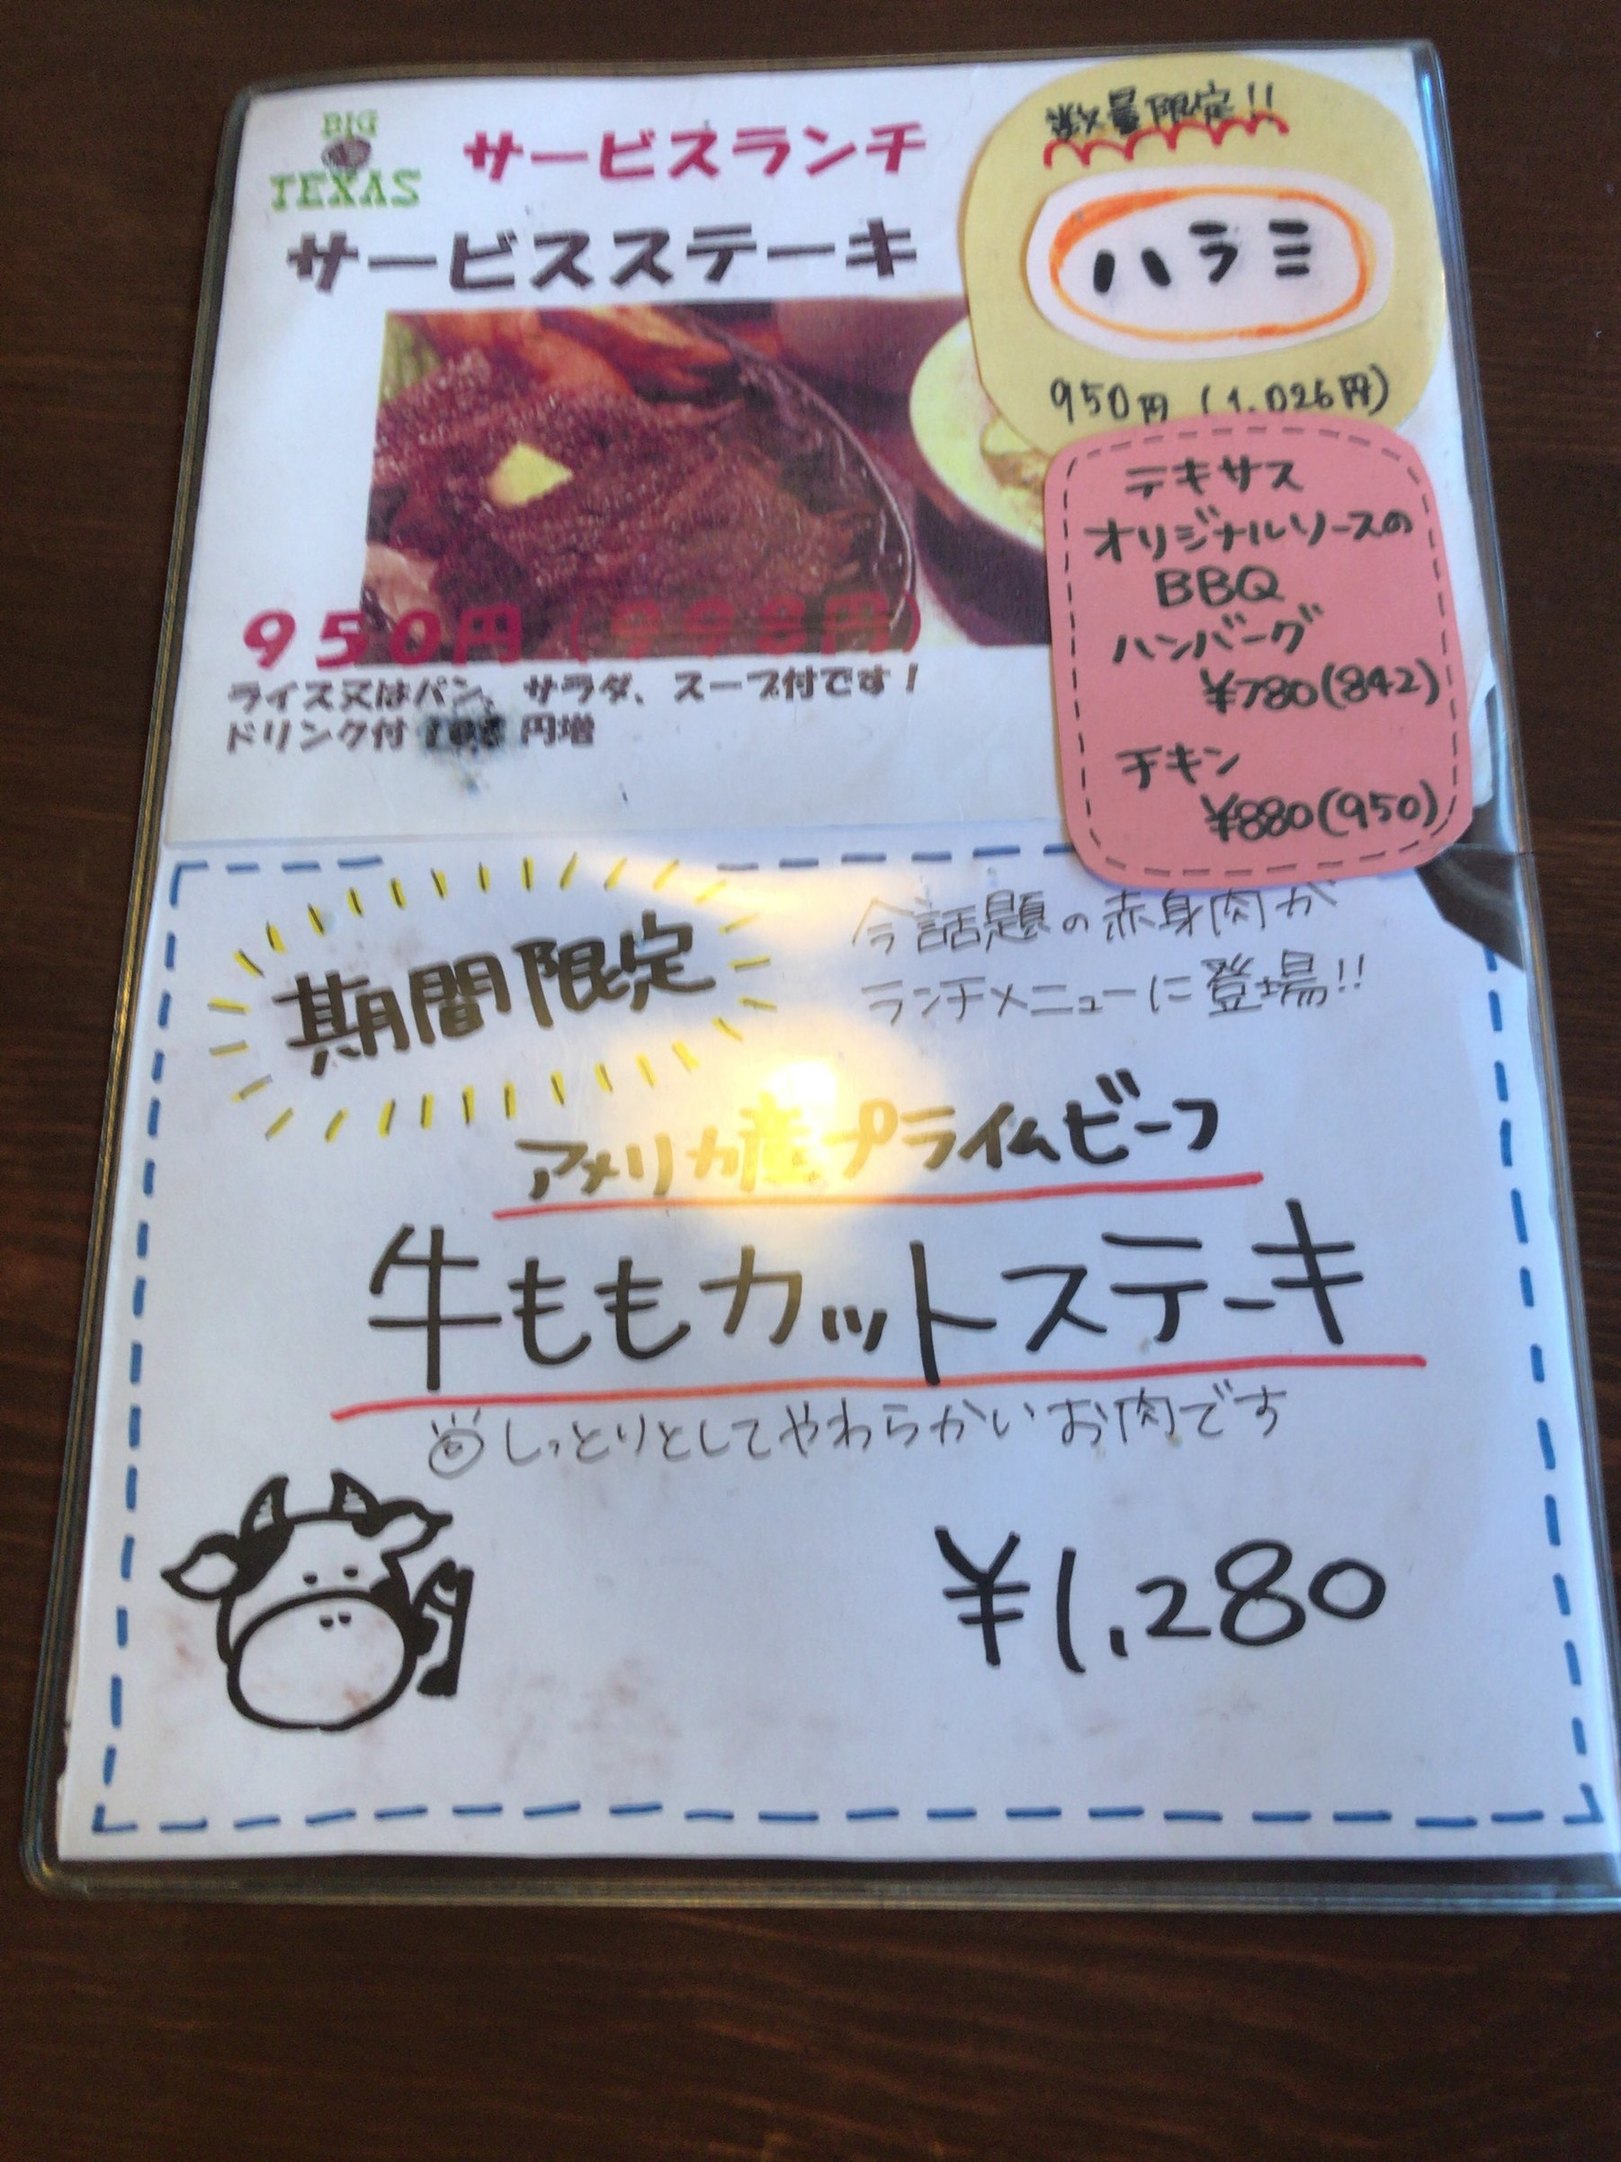 BIG
TEXAS
サービスランチ
サービスステーキ
950円(998円)
ライス又はパン、サラダ、スープ付です!
ドリンク付 円増
数量限定!!
ハラミ
950円(1.026円)
テキサス
オリジナルソースの
BBQ
ハンバーグ
¥780(842)
チキン
¥880(950)
期間限定
今話題の赤身肉が
ランチメニューに登場!!
アメリカ産プライムビーフ
牛ももカットステーキ
しっとりとしてやわらかいお肉です
¥1.280